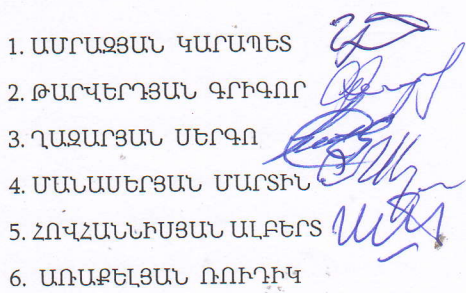 1. ԱՄՐԱԶՅԱՆ ԿԱՐԱՊԵՏ
2. ԹԱՐՎԵՐԴՅԱՆ ԳՐԻԳՈՐ
3. ՂԱԶԱՐՅԱՆ ՍԵՐԳՈ
4. ՄԱՆԱՍԵՐՅԱՆ ՄԱՐՏԻՆ
5. ՀՈՎՀԱՆՆԻՍՅԱՆ ԱԼԲԵՐՏ
6. ԱՌԱՔԵԼՅԱՆ ՌՈՒԴԻԿ